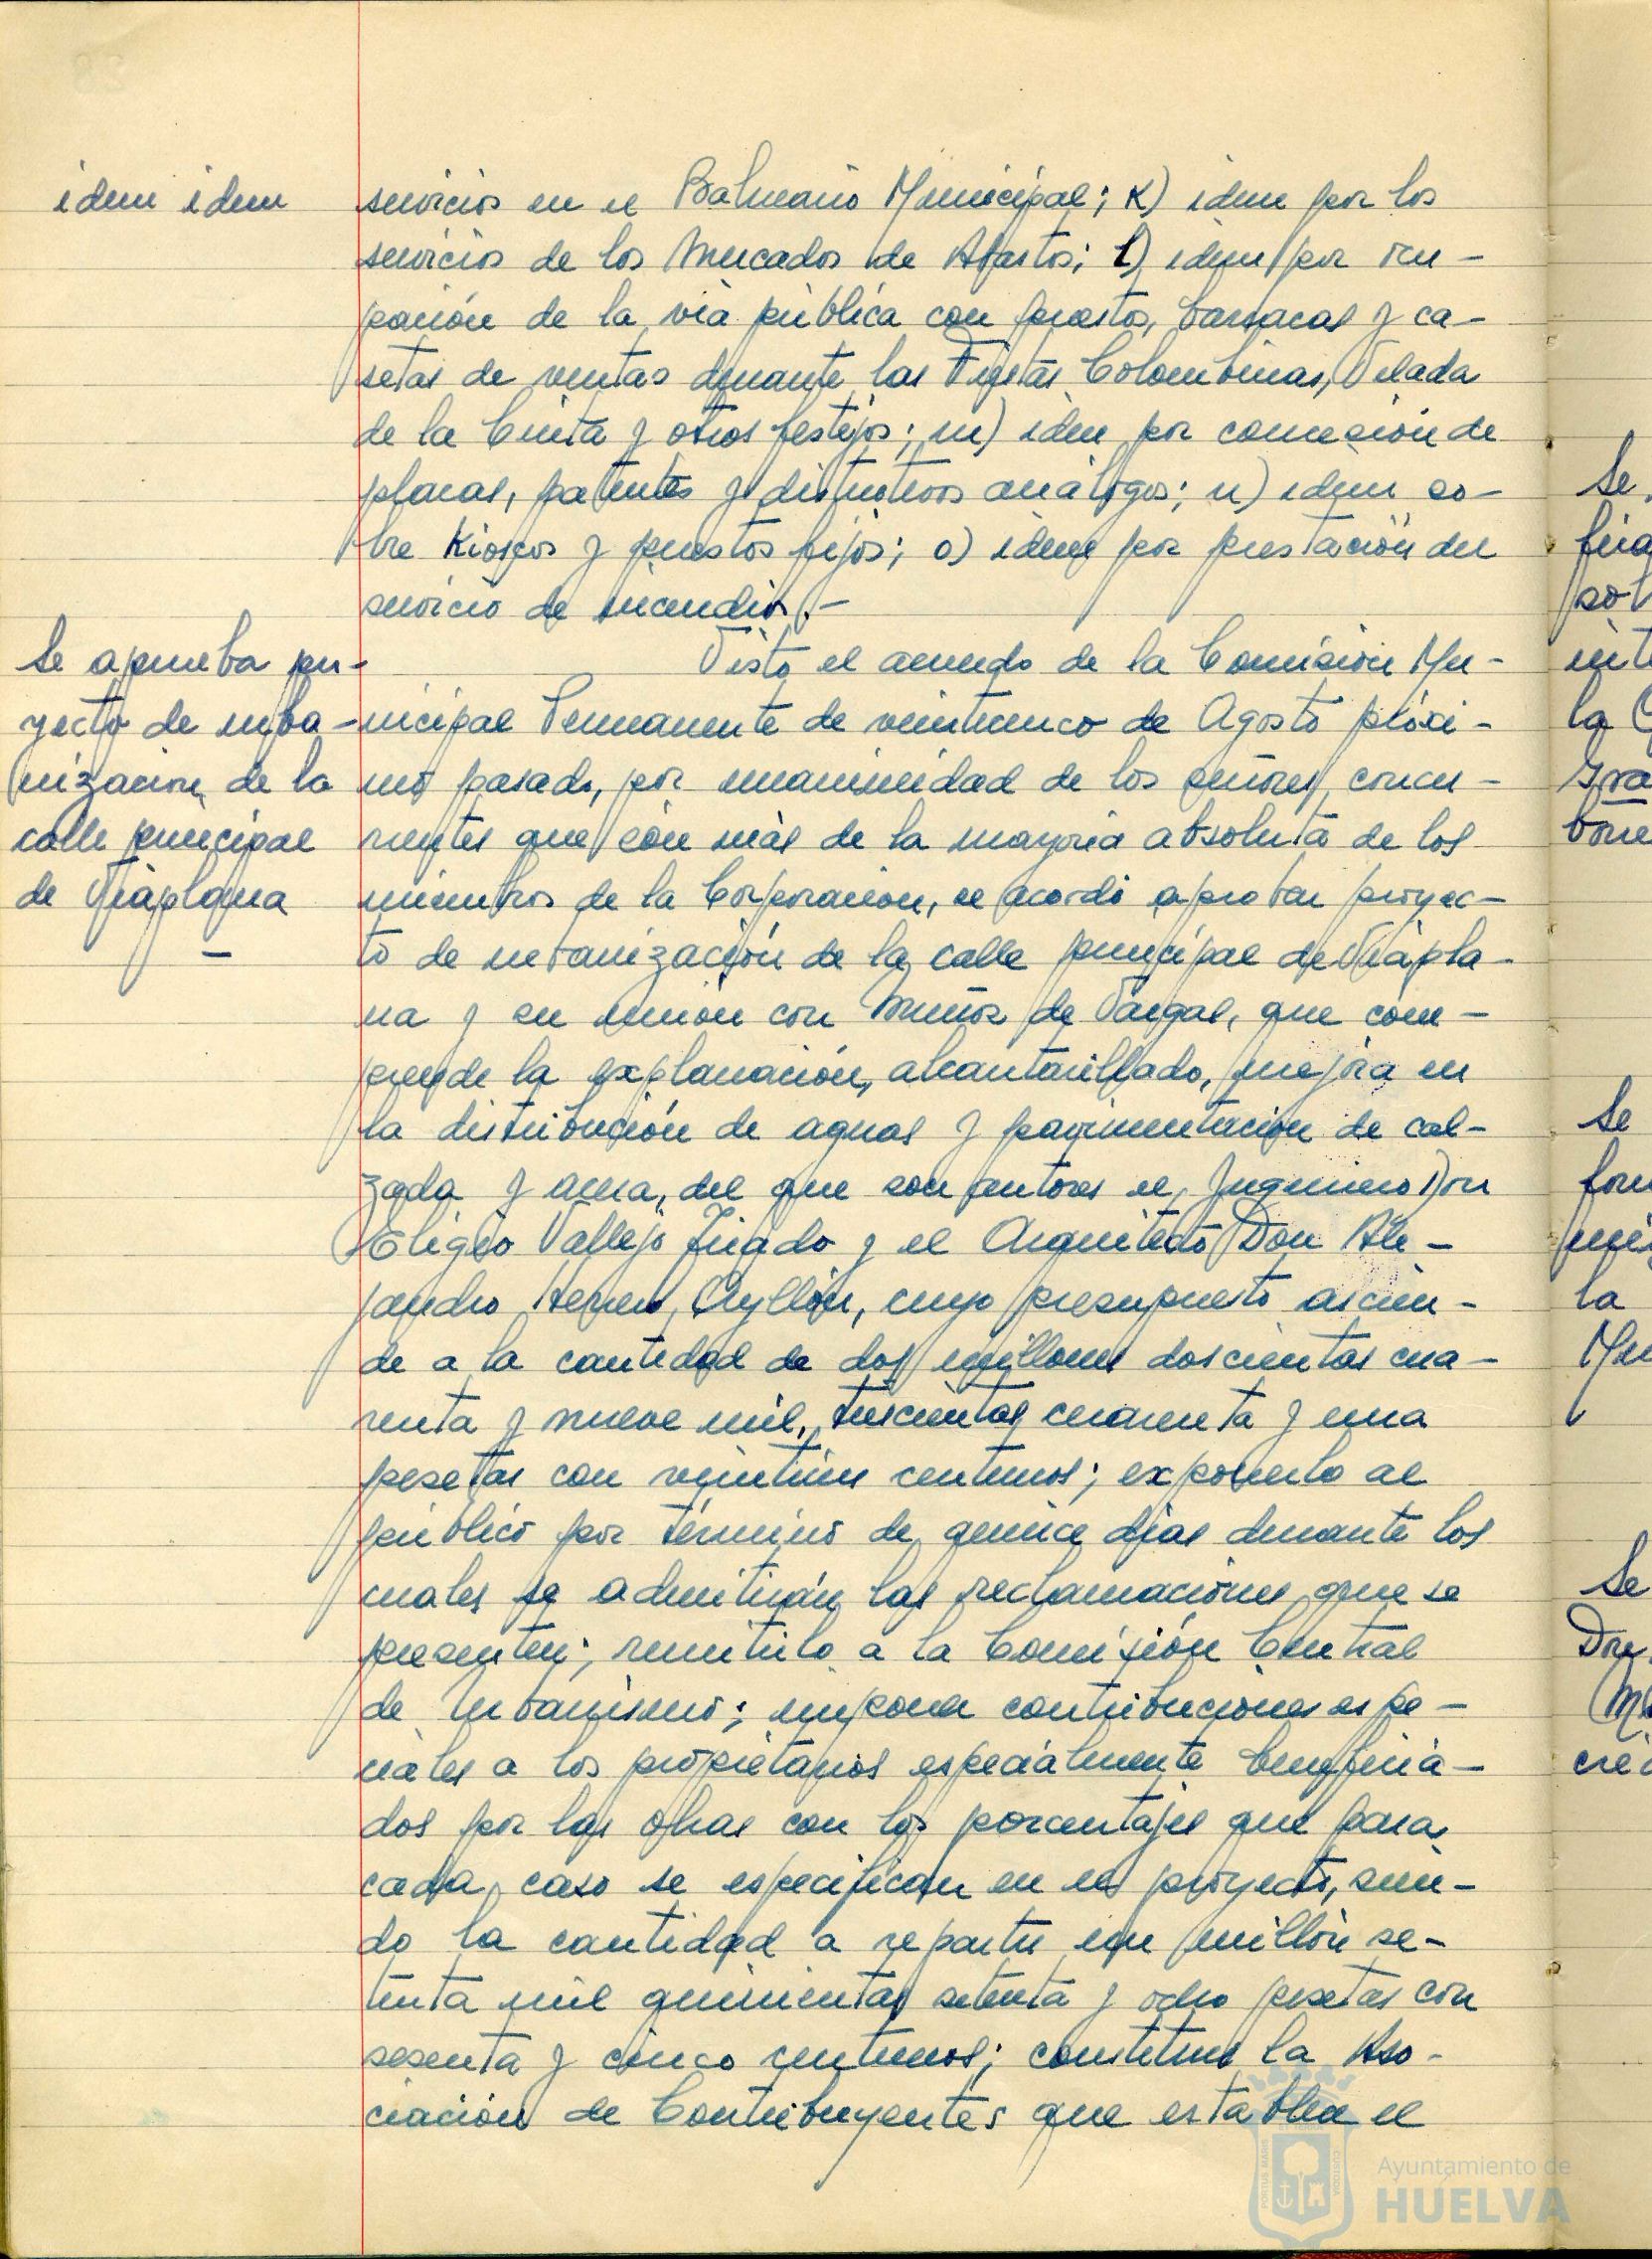 idem idem
servicios en el Balneario Municipal; K) idem por los
servicios de los Mercados de Abastos; l) idem por ocu-
pación de la vía pública con puestos, barracas y ca-
setas de ventas durante las Fiestas Colombinas, Velada
de la Cinta y otros festejos; m) idem por concesión de
placas, patentes y distintivos análogos; n) idem so-
bre Kioskos y puestos fijos; o) idem por prestación del
servicio de incendios.-
Se aprueba pro-
yecto de urba-
nización de la
calle principal
de Viaplana
-
Visto el acuerdo de la Comisión Mu-
nicipal Permanente de veinticinco de Agosto próxi-
mo pasado, por unanimidad de los señores concu-
rrentes que son más de la mayoría absoluta de los
miembros de la Corporación, se acordó aprobar proyec-
to de urbanización de la calle principal de Viapla-
na y su unión con Muñoz de Vargas, que com-
prende la explanación, alcantarillado, mejora en
la distribución de aguas y pavimentación de cal-
zada y acera, del que son autores el Ingeniero Don
Eligio Vallejo Tirado y el Arquitecto Don Ale-
jandro Herrero Ayllón, cuyo presupuesto ascien-
de a la cantidad de dos millones doscientas cua-
renta y nueve mil, trescientas cuarenta y una
pesetas con céntimos; exponerlo al
público por término de quince días durante los
cuales se admitirán las reclamaciones que se
presenten; remitirlo a la Comisión Central
de Urbanismo; imponer contribuciones espe-
ciales a los propietarios especialmente beneficia-
dos por las obras con los porcentajes que para
cada caso se especifican en el proyecto, sien-
do la cantidad a repartir un millón se-
tenta mil quinientas setenta y ocho pesetas con
sesenta y cinco céntimos; constituir la Aso-
ciación de Contribuyentes que establece el
Se
la
Se
la
Se
Ayuntamiento de
HUELVA